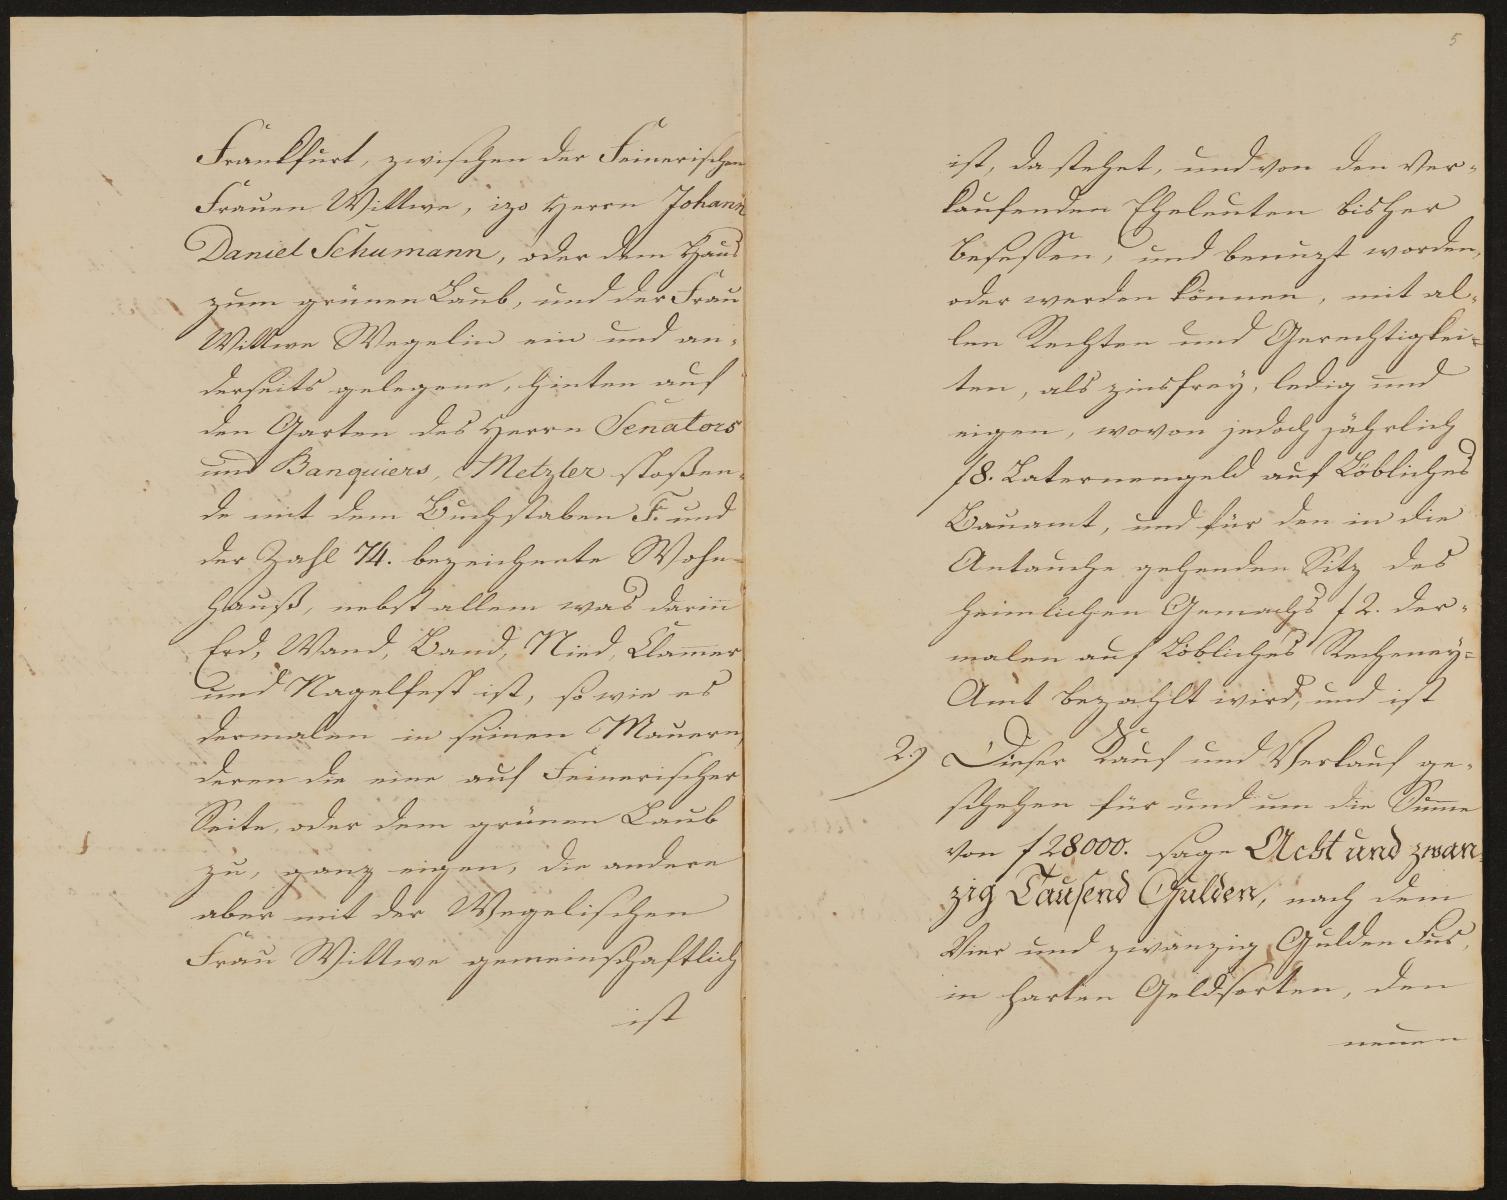 Frankfurt, zwischen der Feinerischen
Frauen Wittwe, izo Herrn Johann
Daniel Schumann, oder dem Haus
zum grünen Laub, und der Frau
Wittwe Wegelin ein und an-
derseits gelegene, hinten auf
den Garten des Herrn Senators
und Banquiers, Metzler stoßen-
de mit dem Buchstaben F. und
der Zahl 74. bezeichnete Wohn-
hauß, nebst allem was darin̄
Erd, Wand, Band, Nied, Clam̄er
und Nagelfest ist, so wie es
dermalen in seinen Mauern,
deren die eine auf Feinerischer
Seite, oder dem grünen Laub
zu, ganz eigen, die andere
aber mit der Wegelischen
Frau Wittwe gemeinschaftlich
ist
5
ist, da stehet, und von den Ver-
kaufenden Eheleuten bisher
besessen, und benuzt worden,
oder werden können, mit al-
len Rechten und Gerechtigkei-
ten, als zinsfrey, ledig und
eigen, wovon jedoch jährlich
f 8. Laternengeld auf Löbliches
Bauamt, und für den in die
Antauche gehenden Sitz des
heimlichen Gemachs f 2. der-
malen auf Löbliches Recheney-
Amt bezahlt wird, und ist
2.) Dieser Kauf und Verkauf ge-
schehen für und um die Sum̄e
von f 28000. sage Acht und zwan-
zig Tausend Gulden, nach dem
Vier und zwanzig Gulden Fus,
in harten Geldsorten, den
neuen